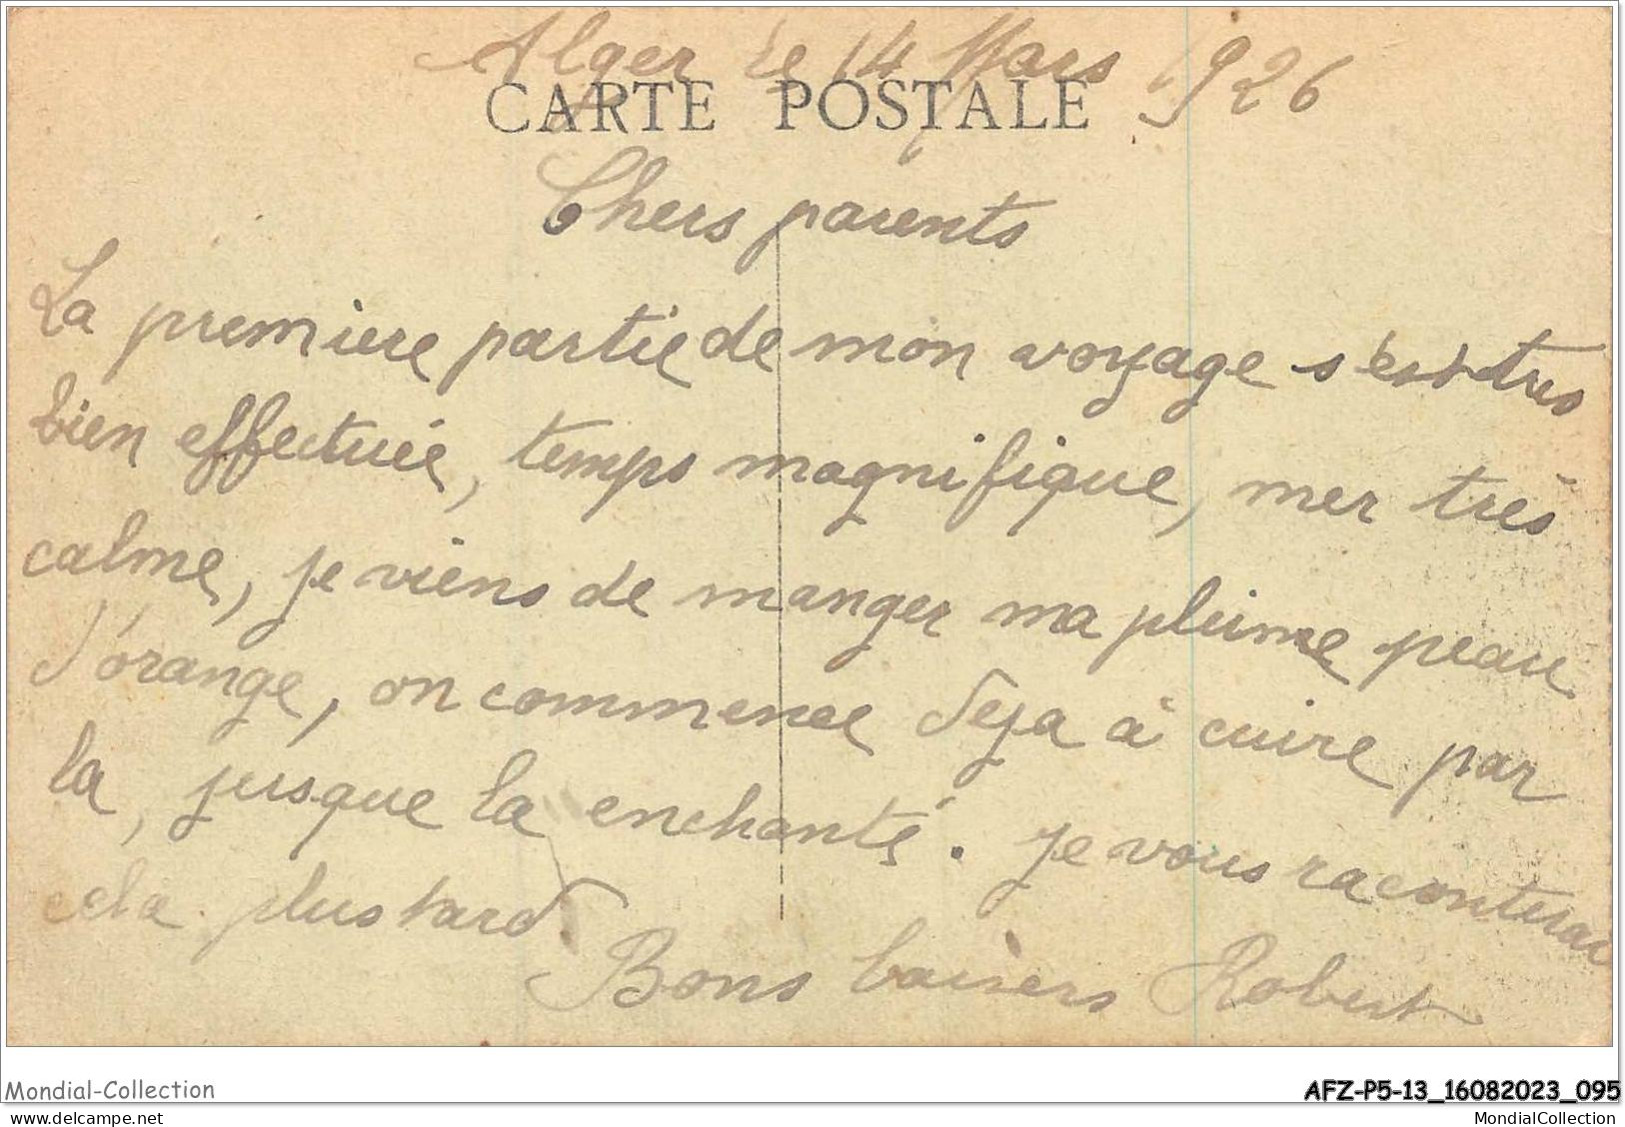 Alger le 14 Mars 1926
CARTE POSTALE
Chers parents
La premiere partie de mon voyage s'est tres
bien effectuée, temps magnifique, mer très
calme, je viens de manger ma pleine peau
d'orange, on commence deja à cuire par
la, jusque la enchanté. je vous raconterai
cela plus tard
Bons baisers Robert
Mondial-Collection
AFZ-P5-13_16082023_095
www.delcampe.net
MondialCollection